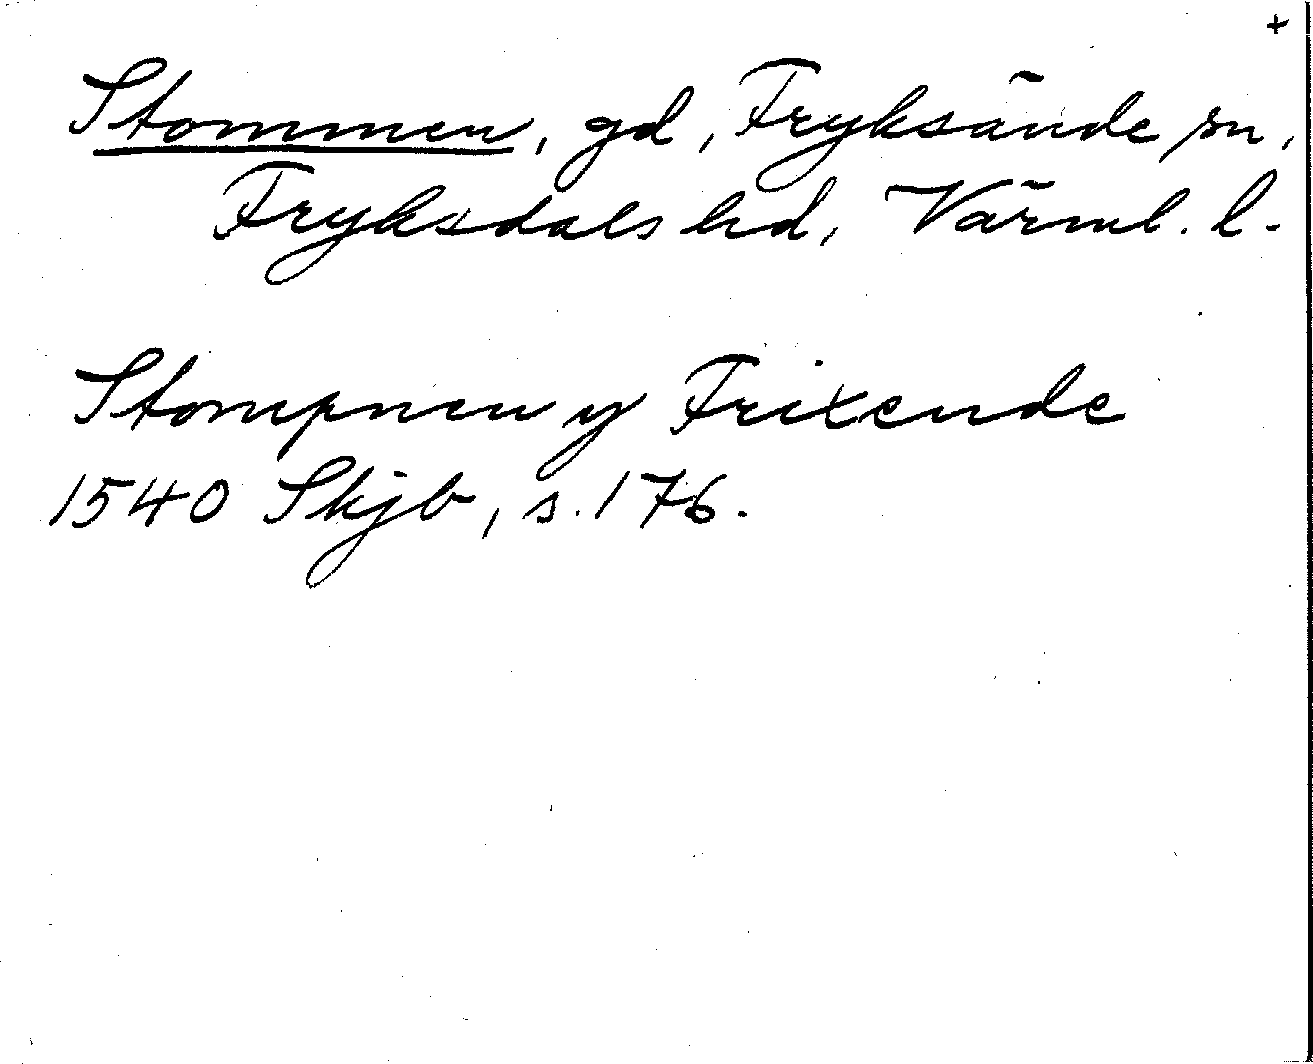 +
Stommen, gd, Fryksände sn,
Fryksdals hd, Värml. l.
Stompnen y Frixende
1540 Skjb, s. 176.